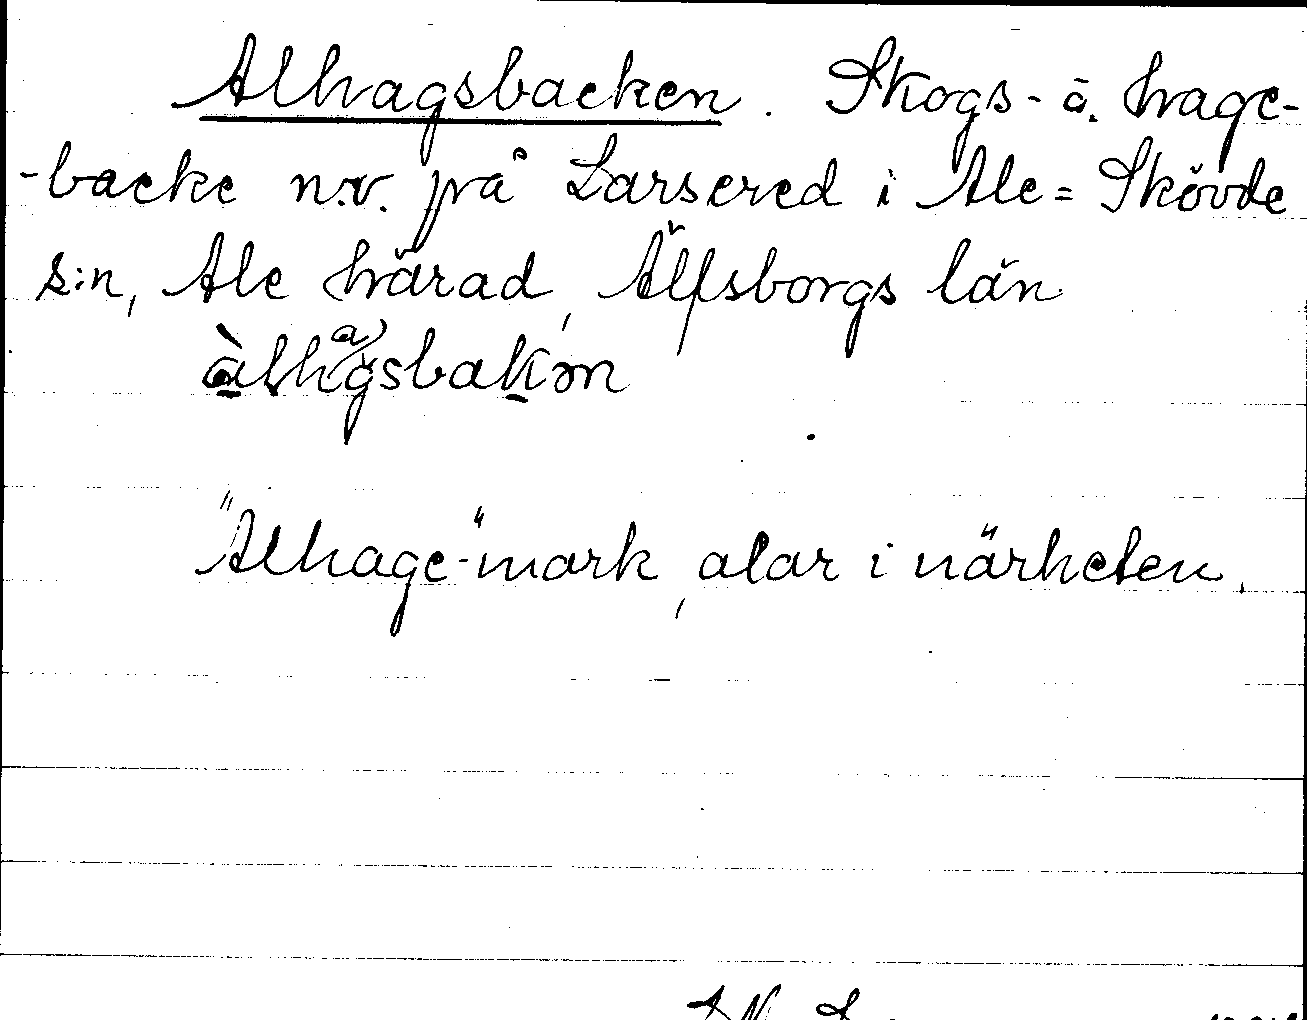 Alhagsbacken. Skogs- ö. hage-
-backe n.v. på Larsered i Ale=Skövde
s:n, Ale härad, Älfsborgs län
àlhagsbakən
"Alhage-"mark, alar i närheten.